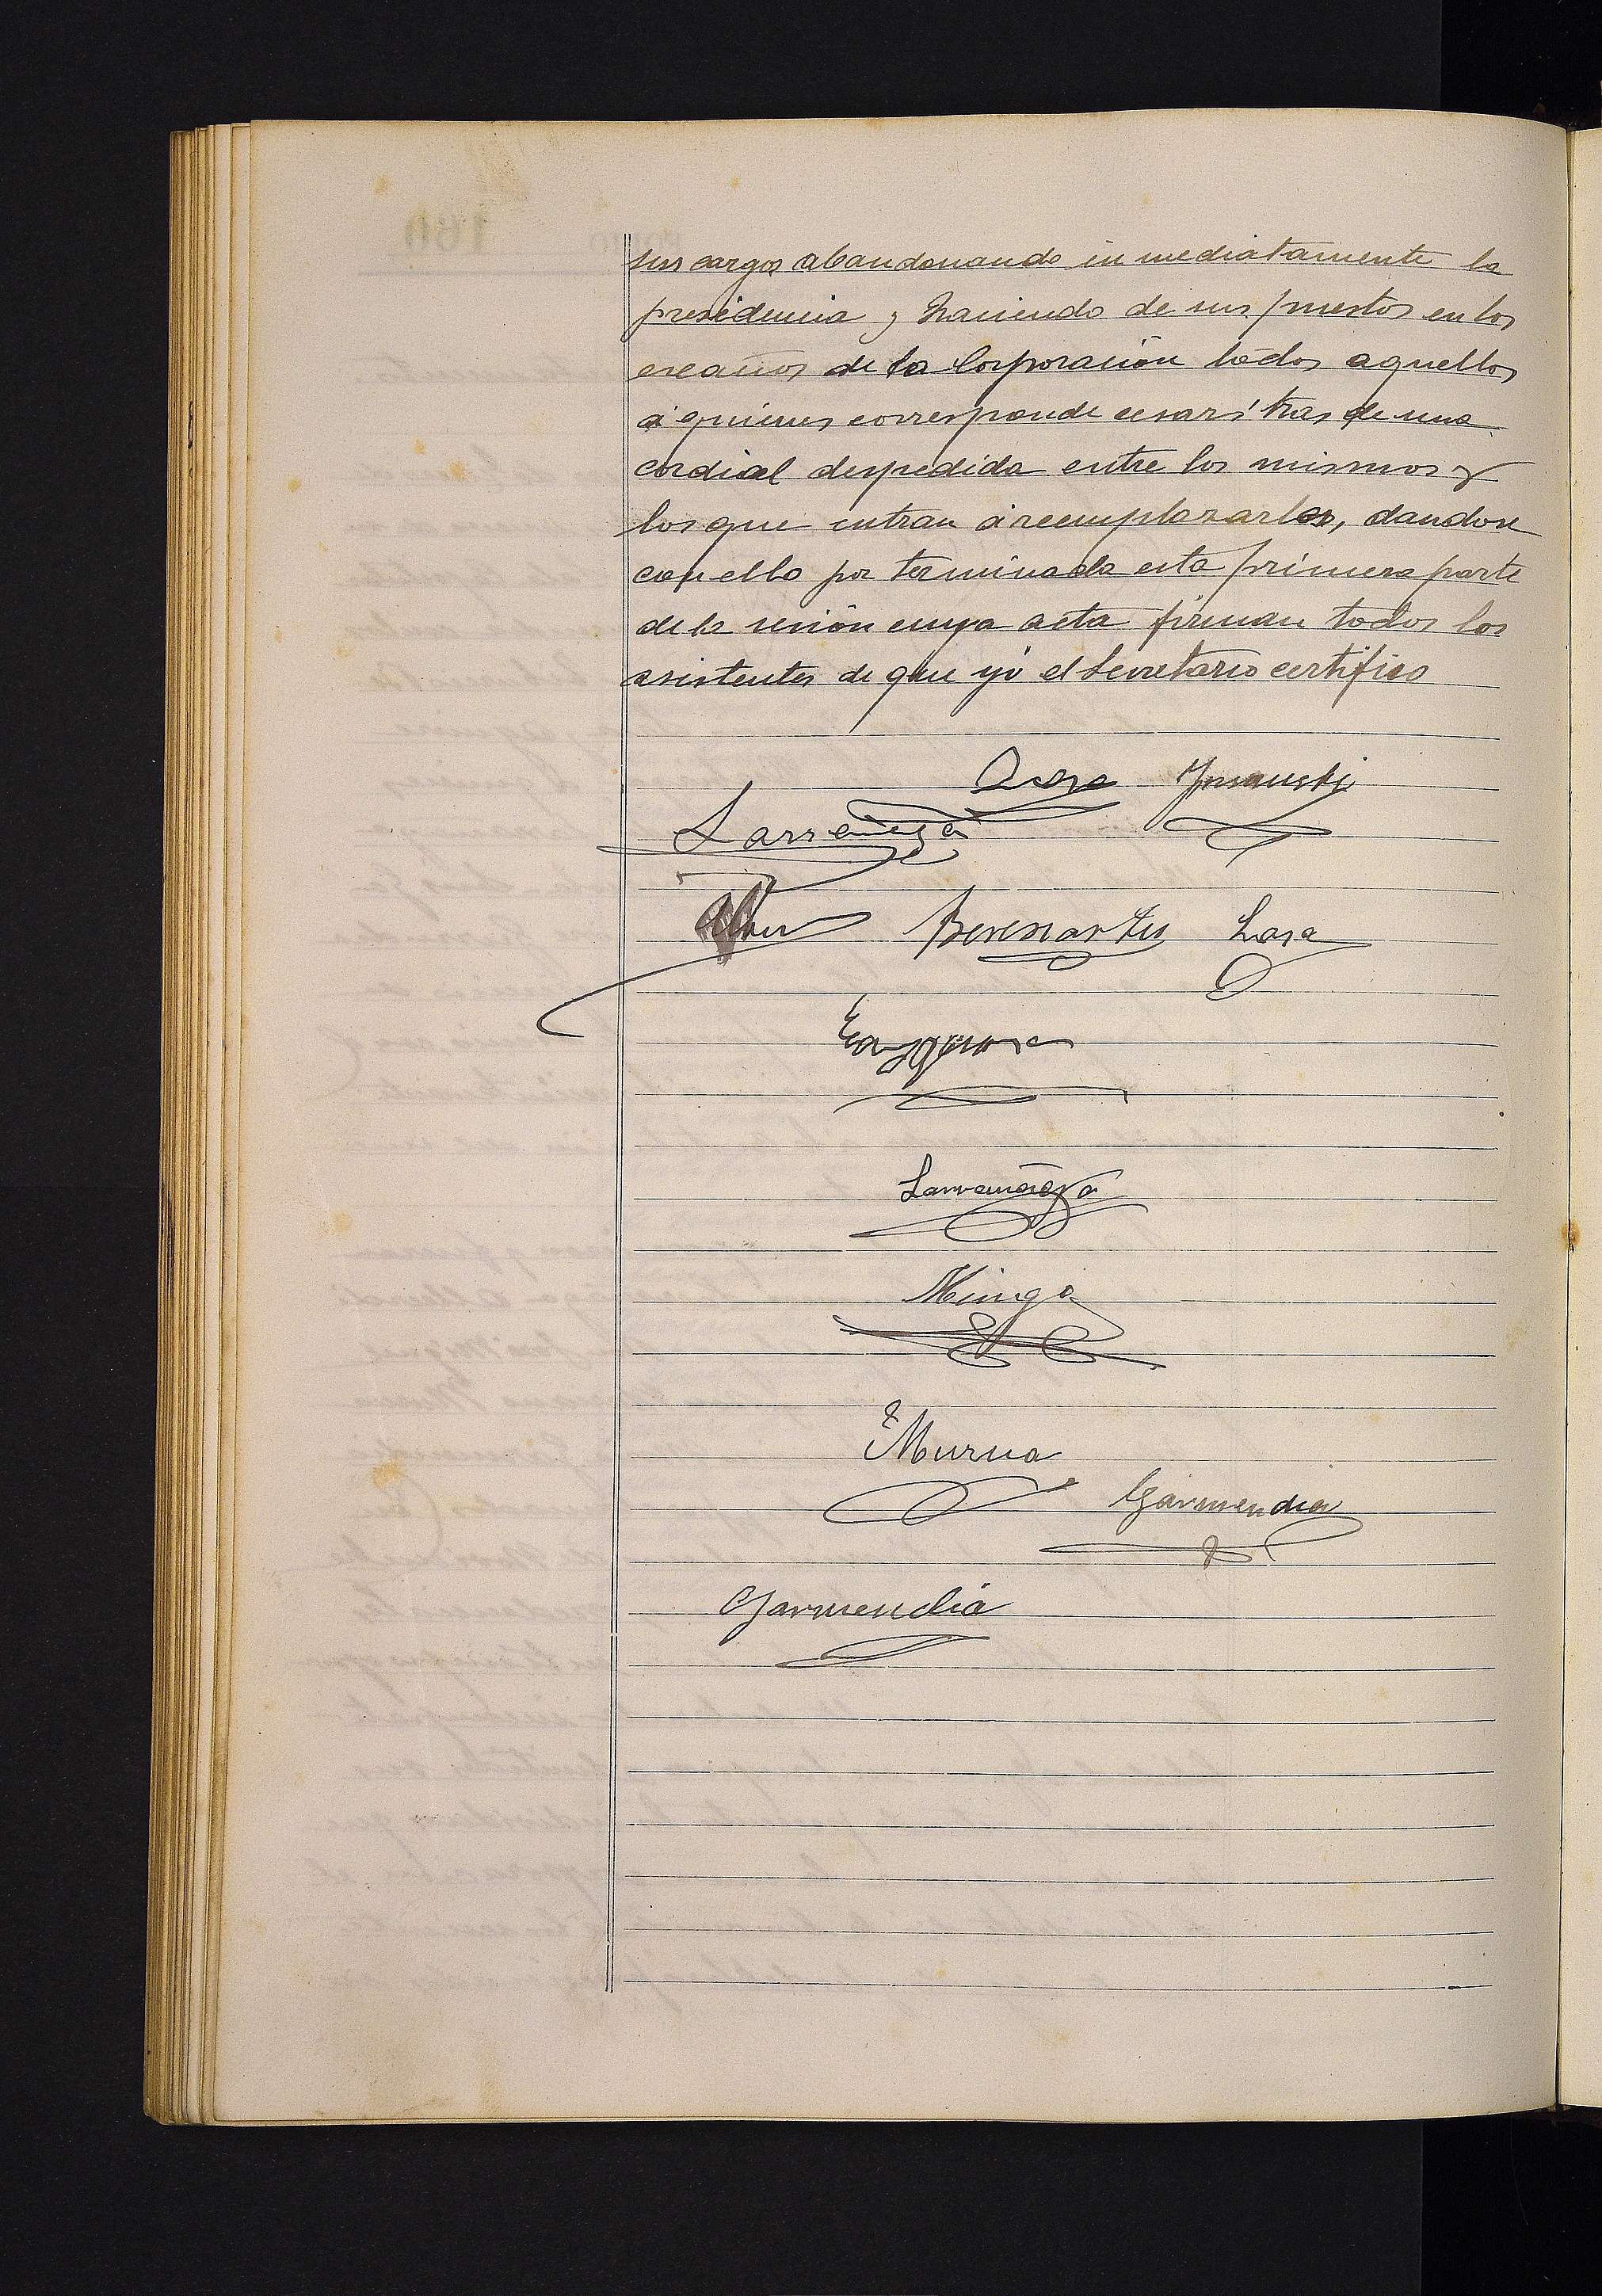 sus cargos abandonando inmediatamente la
presidencia y haciendo de sus puestos en los
escaños de la Corporación todos aquellos
á quienes corresponde cesar tras de una
cordial despedida entre los mismos y
los que entran á reemplazarles, dandose
con ello por terminada esta primera parte
de la sesión cuya acta firman todos los
asistentes de que yó el Secretario certifico
Larrañaga
Lasa
Larrañaga
Murua
Garmendia
Garmendia